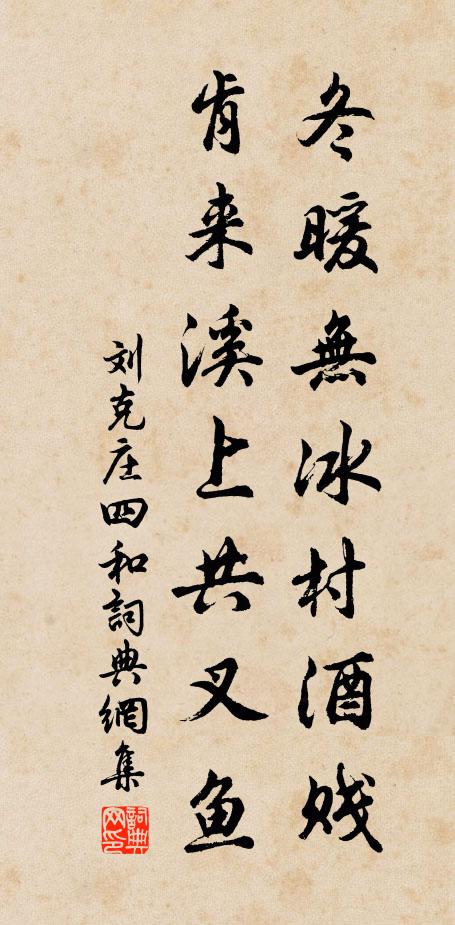 冬暖無冰村酒賤
肯来溪上共叉鱼
刘克庄四和詞典網集
詞典网印